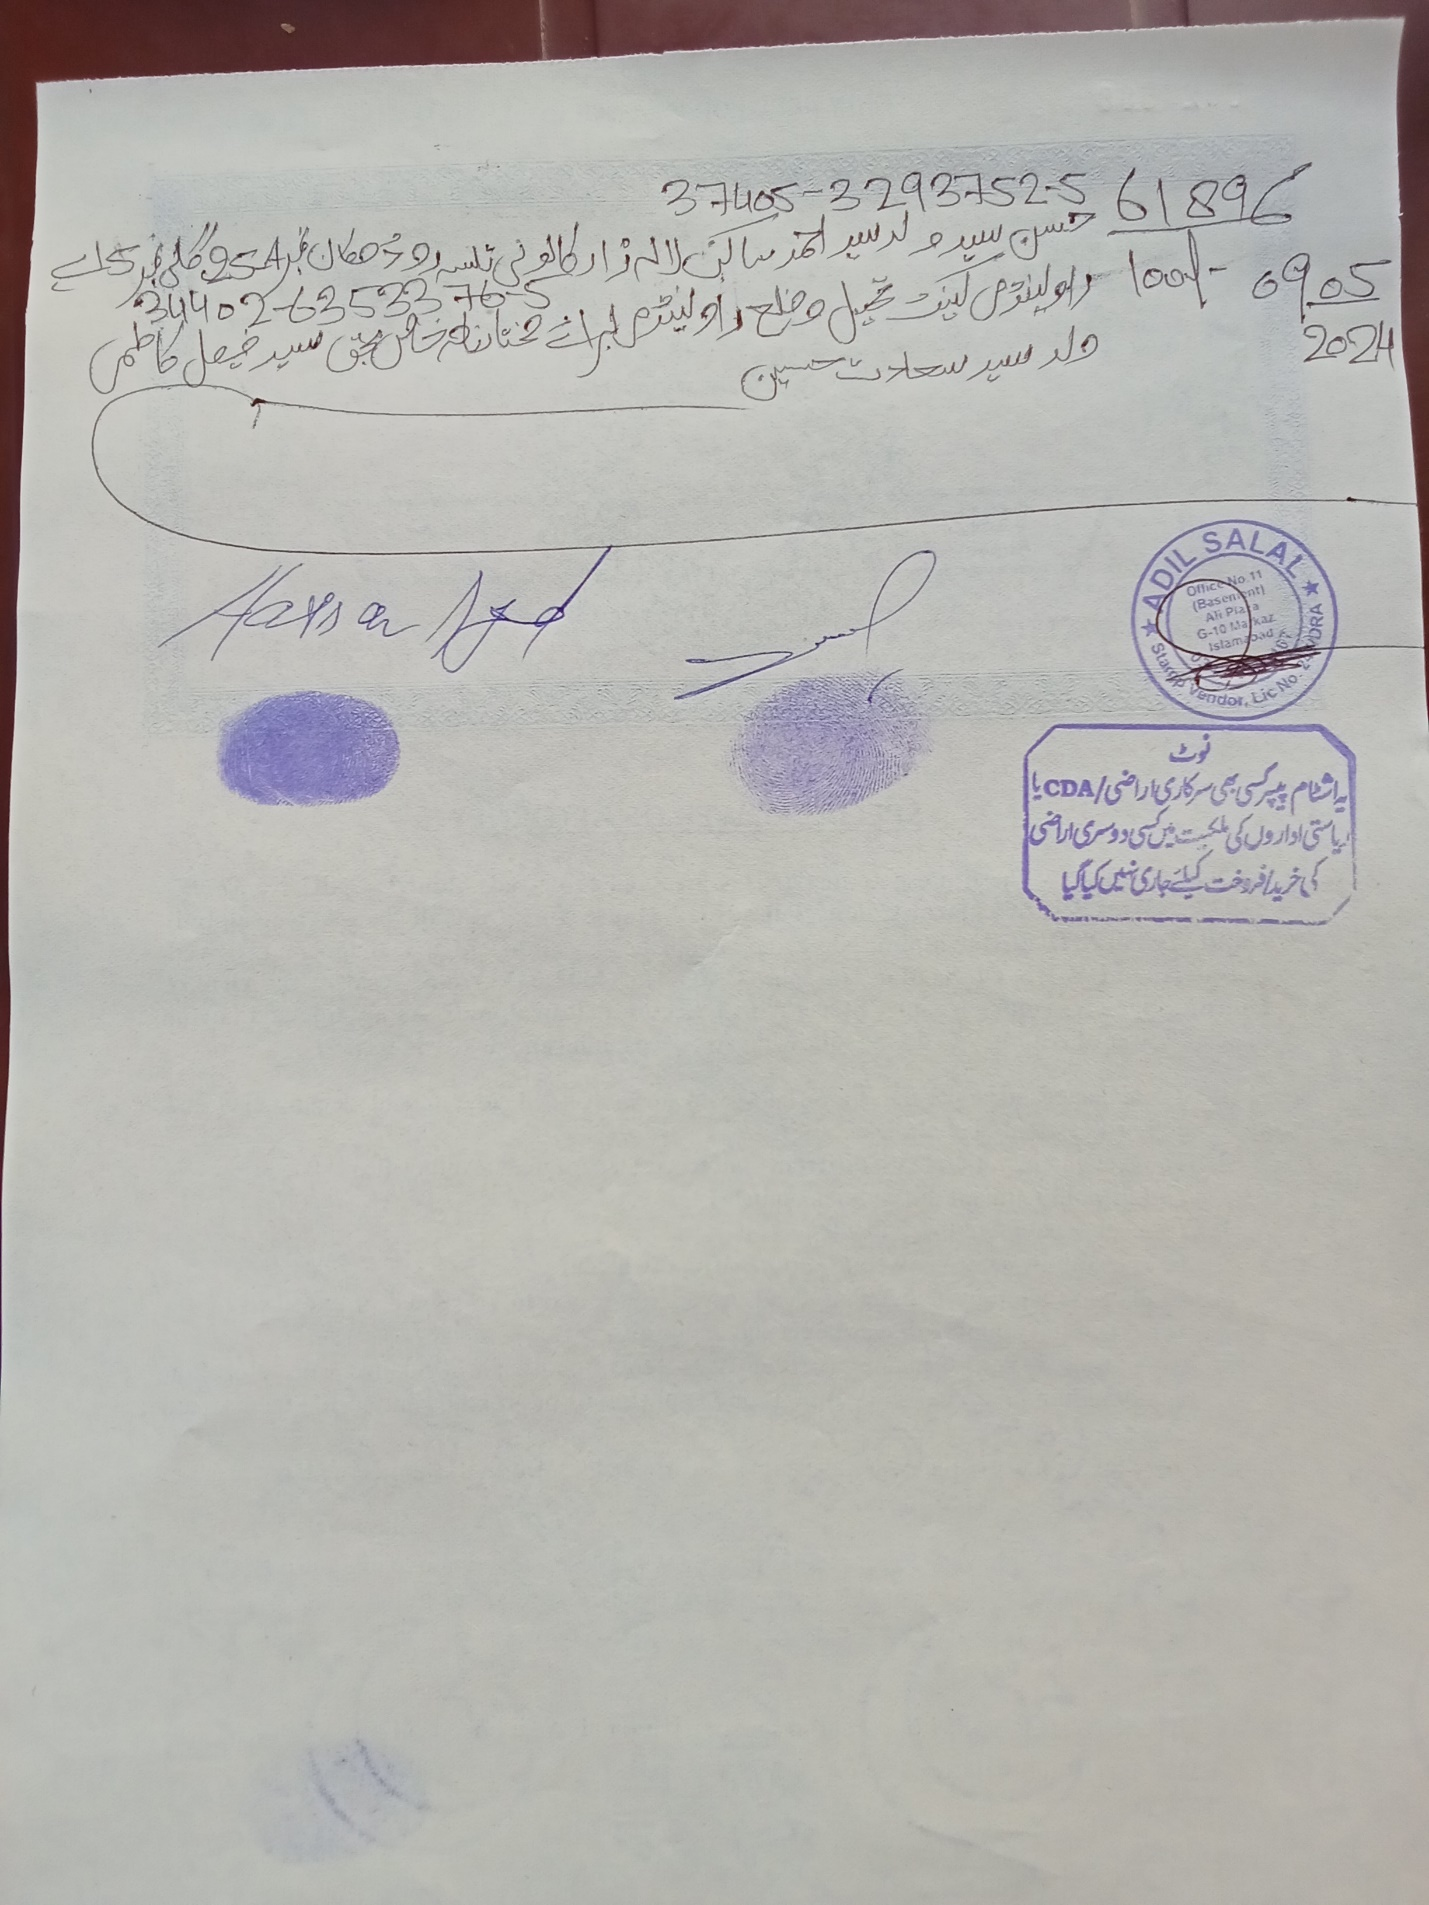 61896 37405-3293752-5
حسن سید ولد سید احمد ساکن لالہ زار کالونی تلسہ روڈ مکان نمبر 254 گلی نمبر 5 اے
100/- 09 05 2024
34402-6353376-5
راولپنڈی کینٹ تحصیل و ضلع راولپنڈی برائے مختار نامہ خاص بحق سید فیصل کاظمی
ولد سید سعادت حسین
Hassan Syed
ADIL SALAL
Office No.11
(Basement)
Ali Plaza
G-10 Markaz
Islamabad
Stamp Vendor, Lic No.
نوٹ
یہ اشٹام پیپر کسی بھی سرکاری اراضی/CDA یا
ریاستی اداروں کی ملکیت میں کسی دوسری اراضی
کی خرید/فروخت کیلئے جاری نہیں کیا گیا